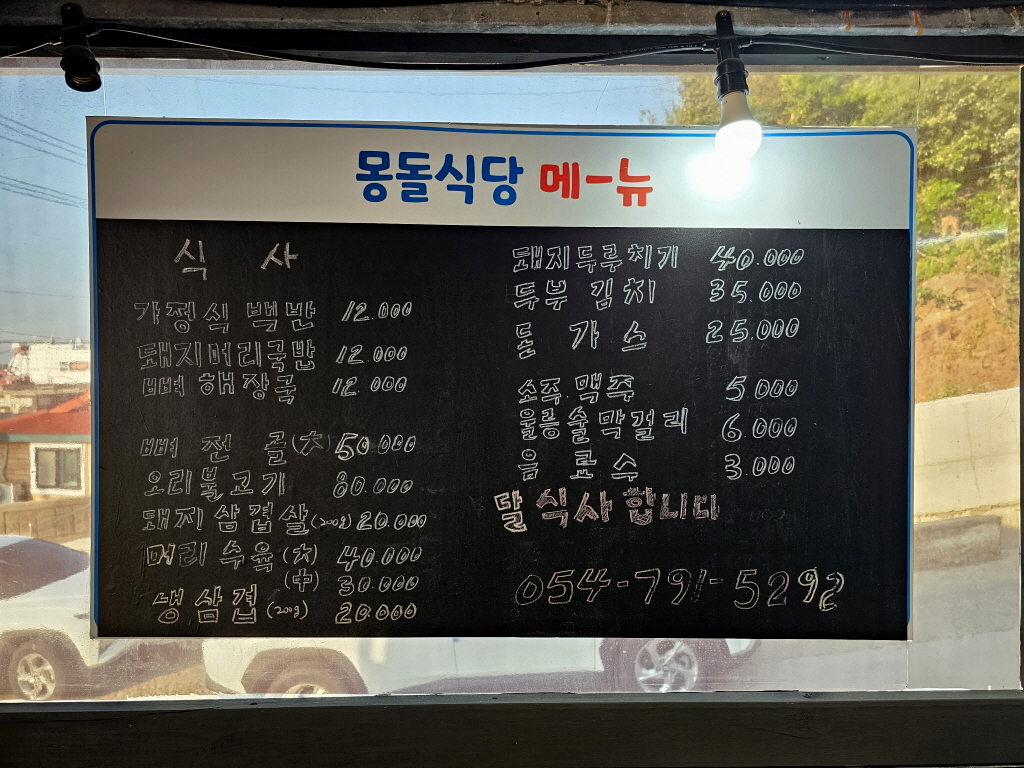 몽돌식당 메-뉴
식 사
가정식 백반 12.000
돼지머리국밥 12.000
뼈 해장국 12.000
뼈 전 골(大) 50.000
오리불고기 80.000
돼지 삼겹살(200g) 20.000
머리 수육 (大) 40.000
(中) 30.000
냉삼겹 (200g) 20.000
돼지두루치기 40.000
두부 김치 35.000
돈 가 스 25.000
소주. 맥주 5.000
울릉술막걸리 6.000
음 료 수 3.000
달 식사 합니다
054-791-5292